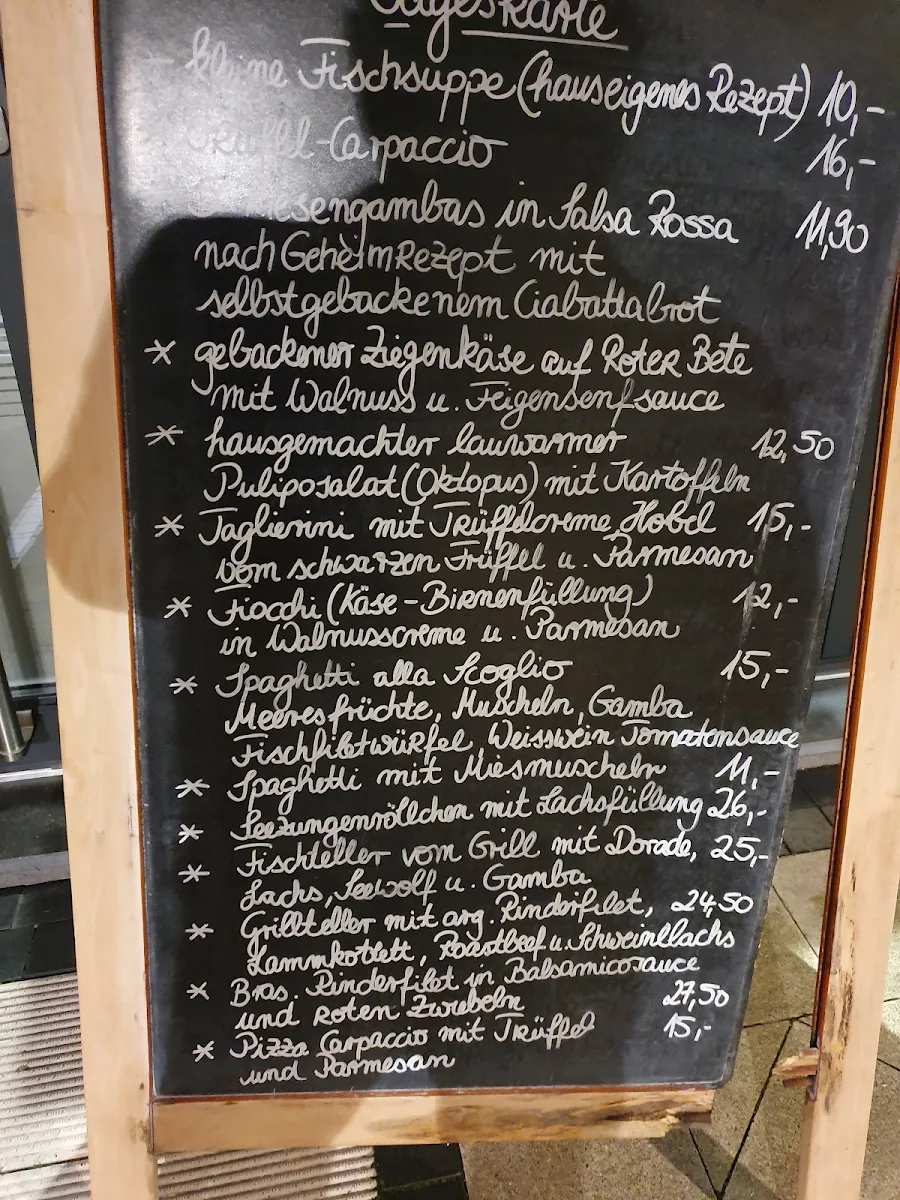 Tageskarte
kleine Fischsuppe (hauseigenes Rezept) 10,-
Trüffel-Carpaccio 16,-
Riesengambas in Salsa Rossa 11,90
nach GeheimRezept mit
selbstgebackenem Ciabattabrot
* gebackener Ziegenkäse auf Roter Bete
mit Walnuss u. Feigensenfsauce
* hausgemachter lauwarmer 12,50
Puliposalat (Oktopus) mit Kartoffeln
* Taglierini mit Trüffelcreme, Hobel 15,-
vom schwarzen Trüffel u. Parmesan
* Fiocchi (Käse-Birnenfüllung) 12,-
in Walnusscreme u. Parmesan
* Spaghetti alla Scoglio 15,-
Meeresfrüchte, Muscheln, Gamba
Fischfiletwürfel, Weisswein Tomatensauce
* Spaghetti mit Miesmuscheln 11,-
* Seezungenröllchen mit Lachsfüllung 26,-
* Fischteller vom Grill mit Dorade, 25,-
Lachs, Seewolf u. Gamba
* Grillteller mit arg. Rinderfilet, 24,50
Lammkotlett, Roastbeef u. Schweinelachs
* Bras. Rinderfilet in Balsamicosauce
und roten Zwiebeln 27,50
* Pizza Carpaccio mit Trüffel 15,-
und Parmesan